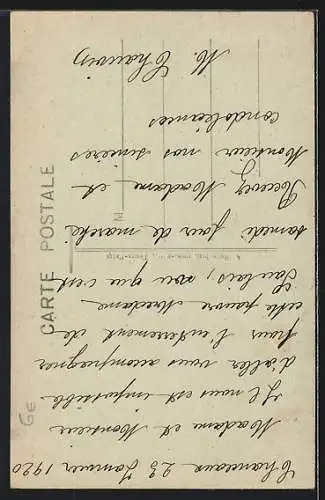 Chanceaux 23 Janvier 1920
Madame et Monsieur
Il nous est impossible
d'aller vous accompagner
pour l'enterrement de
cette pauvre Madame
que c'est
samedi jour de marché
Recevez Madame et
Monsieur nos sincères
condoléances
M. Chauvin
CARTE POSTALE
M
Ge